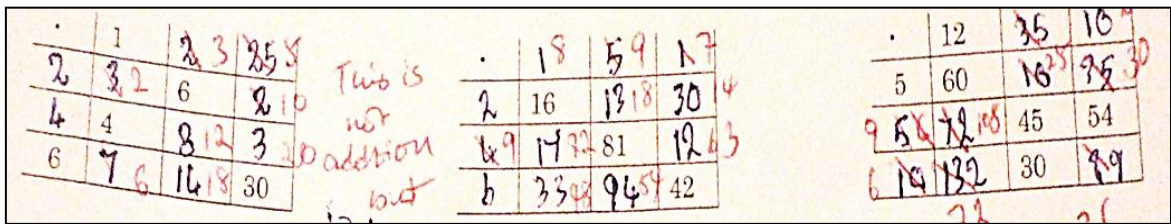 . 1 2 3 25 5
2 3 2 6 2 10
4 4 8 12 3 20
6 7 6 14 18 30
This is
not
addition
but
. 1 8 5 9 1 7
2 16 13 18 30 14
4 9 17 72 81 12 63
6 33 48 94 54 42
. 12 35 10
5 60 10 25 35 30
9 5 72 108 45 54
6 14 132 30 89